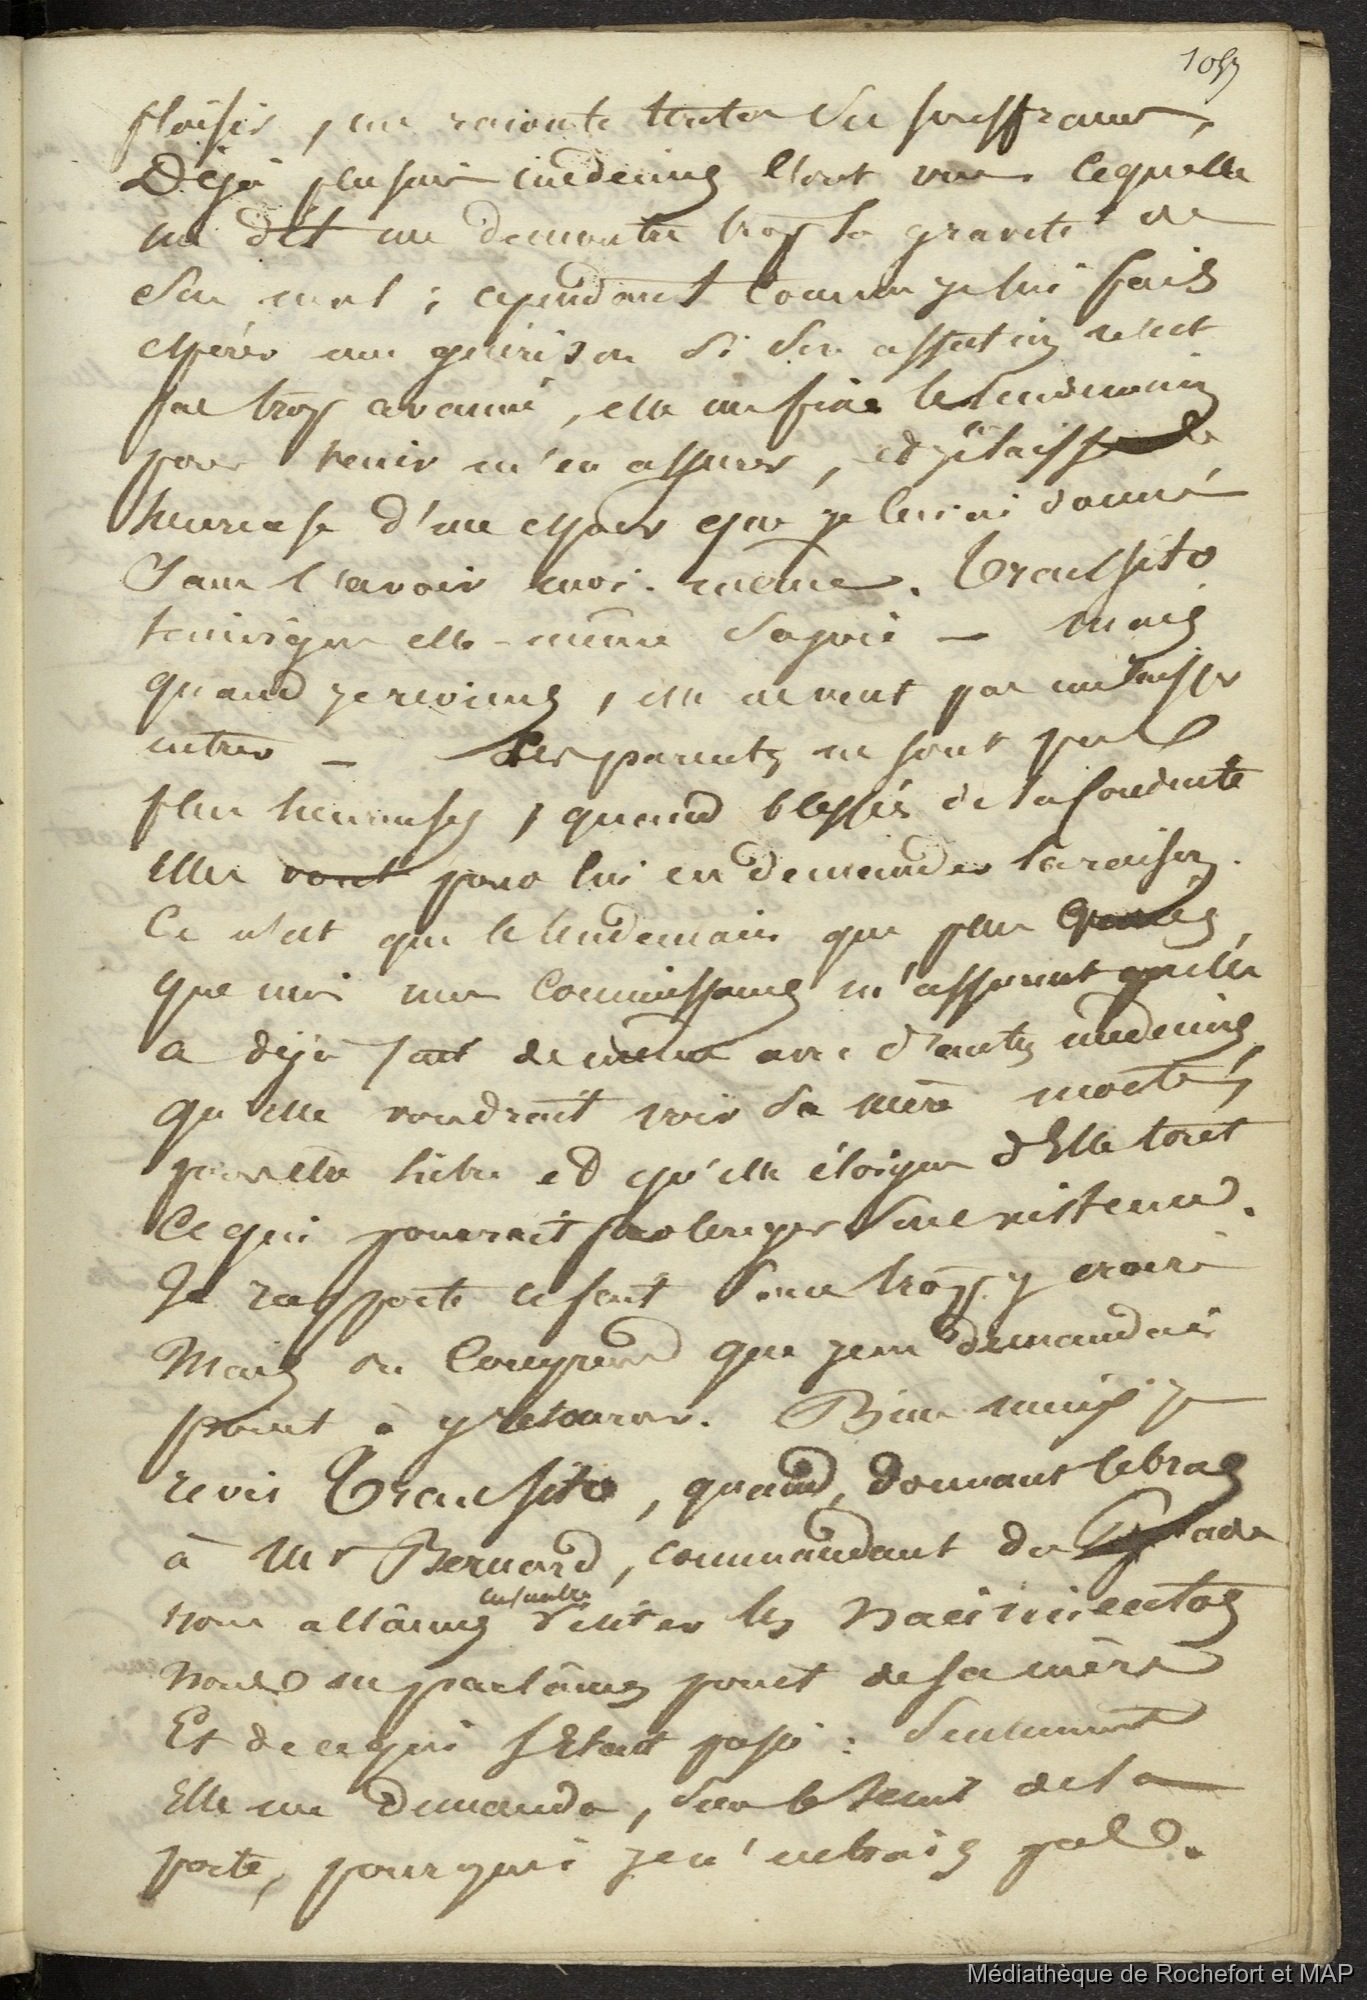 plaisir, me raconte toutes ses souffrances,
Déjà plusieurs médecins l'ont vue, ce qu'elle
me dit me démontre trop la gravité de
son mal ; cependant comme je lui fais
espérer une guérison si son affection n'est
pas trop avancée, elle me fixe le lendemain
pour venir m'en assurer, et je la laisse
heureuse d'un espoir que je lui ai donné
sans l'avoir moi-même. Transito
témoigne elle-même sa joie — mais
quand je reviens, elle ne veut pas me laisser
entrer — Ses parents ne sont pas
plus heureuses, quand blessés de sa conduite
Elles vont pour lui en demander la raison.
Ce n'est que le lendemain que plus
que moi mes connaissances m'assurent qu'elle
a déjà fait de même avec d'autres médecins,
qu'elle voudrait voir sa mère morte,
pour être libre et qu'elle éloigne d'Elle tout
ce qui pourrait prolonger son existence.
Je rapporte ce fait sans trop y croire
Mais on comprend que je ne demandai
point à y retourner. Bien mieux je
revis Transito, quand, donnant le bras
à Mr Bernard, commandant de
nous allâmes ensemble visiter les Nacimientos
Nous ne parlâmes point de sa mère
Et de ce qui s'Etait passé : Seulement
Elle me demanda, sur le seuil de la
porte, pourquoi je n'entrais pas.
Médiathèque de Rochefort et MAP